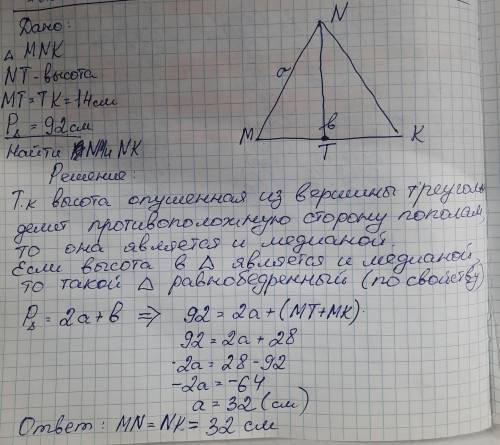 Дано:
△ MNK
NT - высота
MT = TK = 14 см
P△ = 92 см
Найти MN и NK
N
a
M
в
T
K
Решение:
Т.к высота опущенная из вершины треугольн
делит противоположную сторону пополам,
то она является и медианой.
Если высота в △ является и медианой,
то такой △ равнобедренный (по свойству)
P△ = 2a + в ⇒ 92 = 2a + (MT + MK).
92 = 2a + 28
-2a = 28 - 92
-2a = -64
a = 32 (см)
Ответ: MN = NK = 32 см